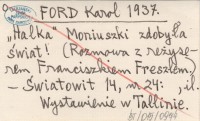 FORD Karol 1937.
„Halka" Moniuszki zdobyła
świat! (Rozmowa z reżyse-
rem Franciszkiem Freszlem)
— Światowit 14, nr 24: , il.
Wystawienie w Tallinie.